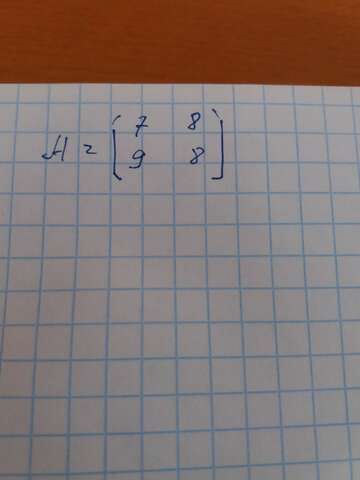 A = [7 8
9 8]